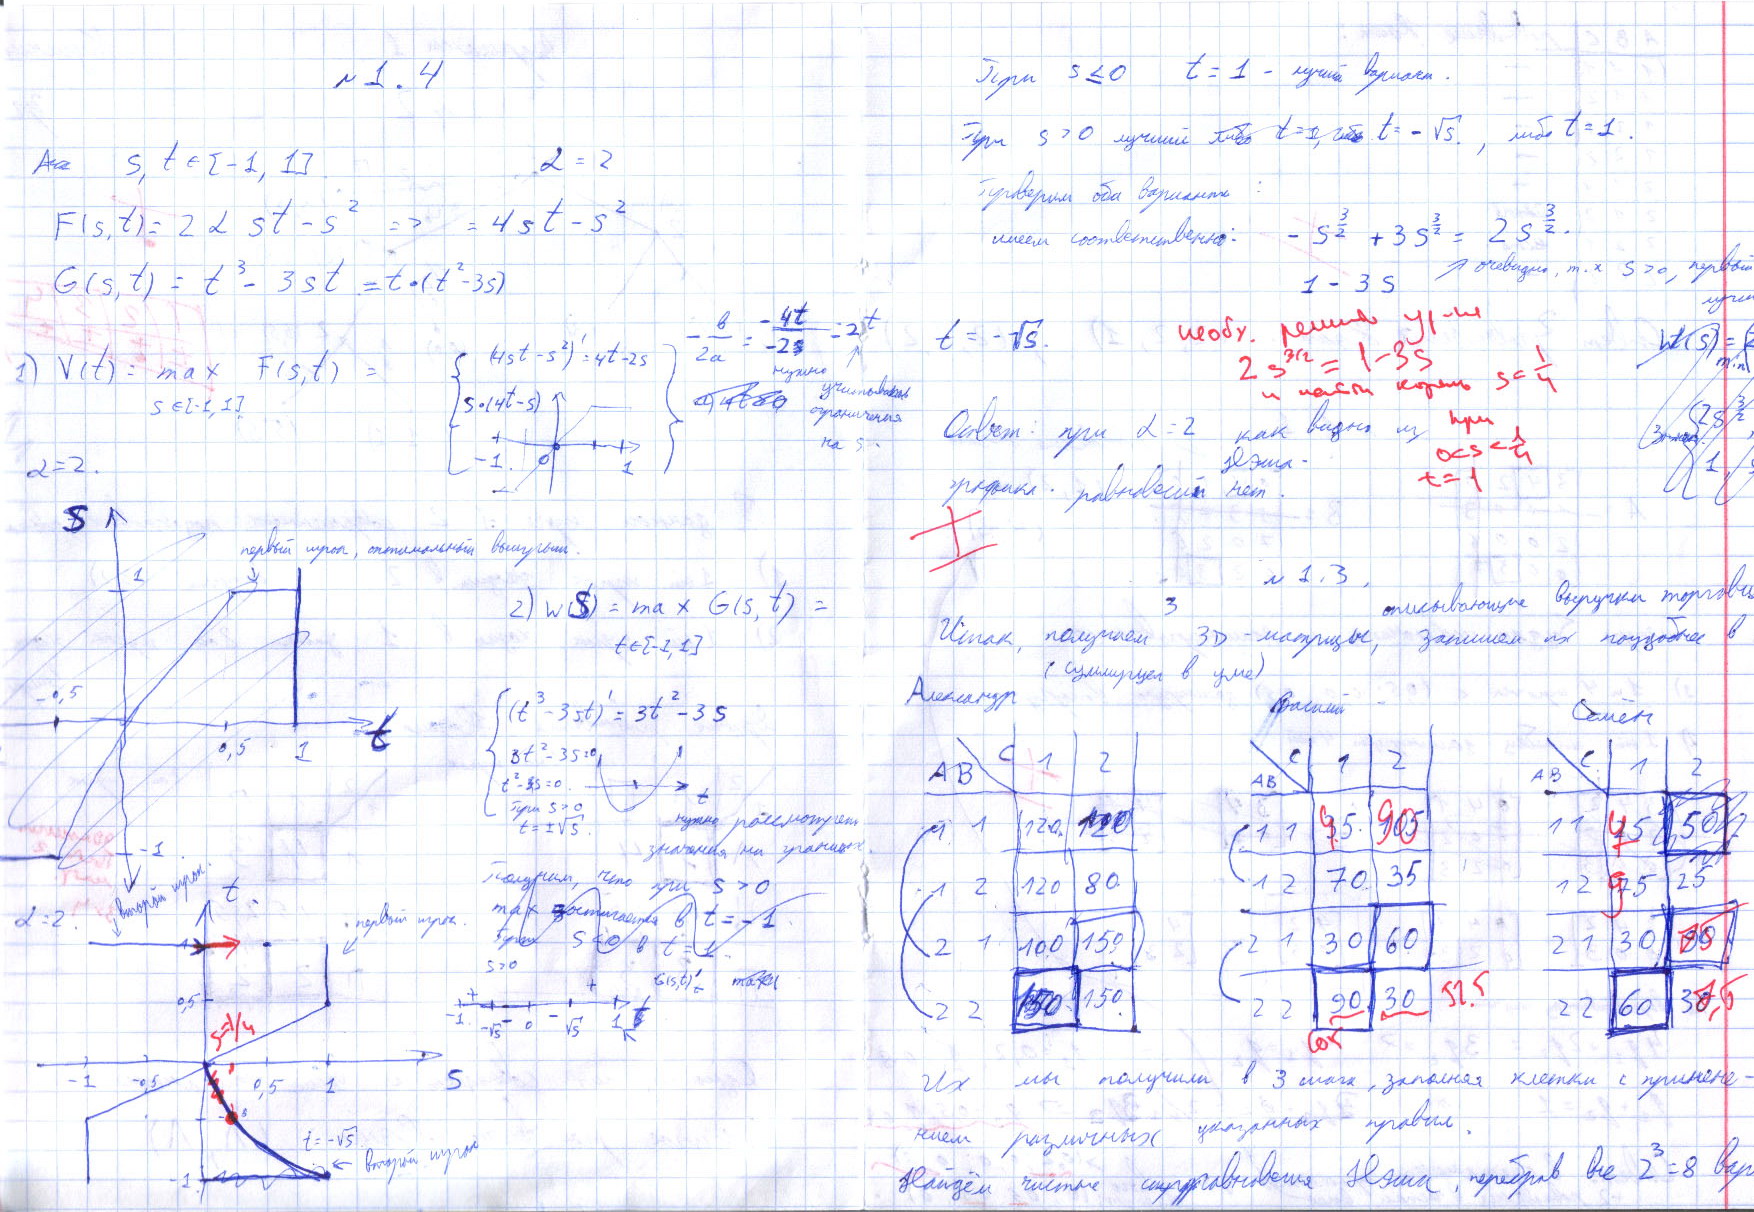 № 1.4
s, t ∈ [-1, 1]    α = 2
F(s,t) = 2 α st - s² => = 4st - s²
G(s,t) = t³ - 3st = t·(t² - 3s)
1) V(t) = max F(s,t) =
s∈[-1,1]
(4st - s²)' = 4t - 2s
s·(4t - s)
-1 0 1
- в/2a = -4t/-2 = 2t
нужно
учитывать
ограничения
на s.
α = 2.
S
первый игрок, оптимальный выигрыш.
1
-0,5 0,5 1 t
-1
2) W(S) = max G(s,t) =
t∈[-1,1]
(t³ - 3st)' = 3t² - 3s
3t² - 3s = 0
t² - s = 0
При s > 0
t = ±√s.
t
нужно рассмотреть
значения на границах.
Получим, что при s > 0
max достигается в t = -1
s ≤ 0 в t = 1
s>0
G(s,t)'t
+ - +
-1 -√s 0 √s 1 t
α = 2.
второй игрок.
t
первый игрок.
1
0,5
s=1/4
-1 -0,5 0,5 1 S
t = -√s
-1
второй игрок
При s ≤ 0 t = 1 - лучший вариант.
При s > 0 лучший t = -√s, либо t = 1.
Проверим оба варианта:
имеем соответственно: -s^{3/2} + 3s^{3/2} = 2s^{3/2}.
1 - 3s
очевидно, т.к s>0, первый
t = -√s.
необх. решить ур-ие
2s^{3/2} = 1-3s
и найти корень s = 1/4
при
0<s<1/4
t = 1
W(s) =
2s^{3/2},
1
Ответ: при α = 2 как видно из
графика. равновесий Нэша - нет.
±
№ 1.3.
Итак, получаем 3 3D-матрицы, описывающие выручки торговц
запишем их поудобнее в
(суммируя в уме)
Александр
AB C 1 2
1 1 120 120
1 2 120 80
2 1 100 150
2 2 150 150
Василий
AB C 1 2
1 1 45 90
1 2 70 35
2 1 30 60
2 2 90 30 52.5
Семён
AB C 1 2
1 1 45 50
1 2 75 25
2 1 30 75
2 2 60
Их мы получили в 3 шага, заполняя клетки с примене-
нием различных указанных правил.
Найдём чистые равновесия Нэша, перебрав все 2³ = 8 вар